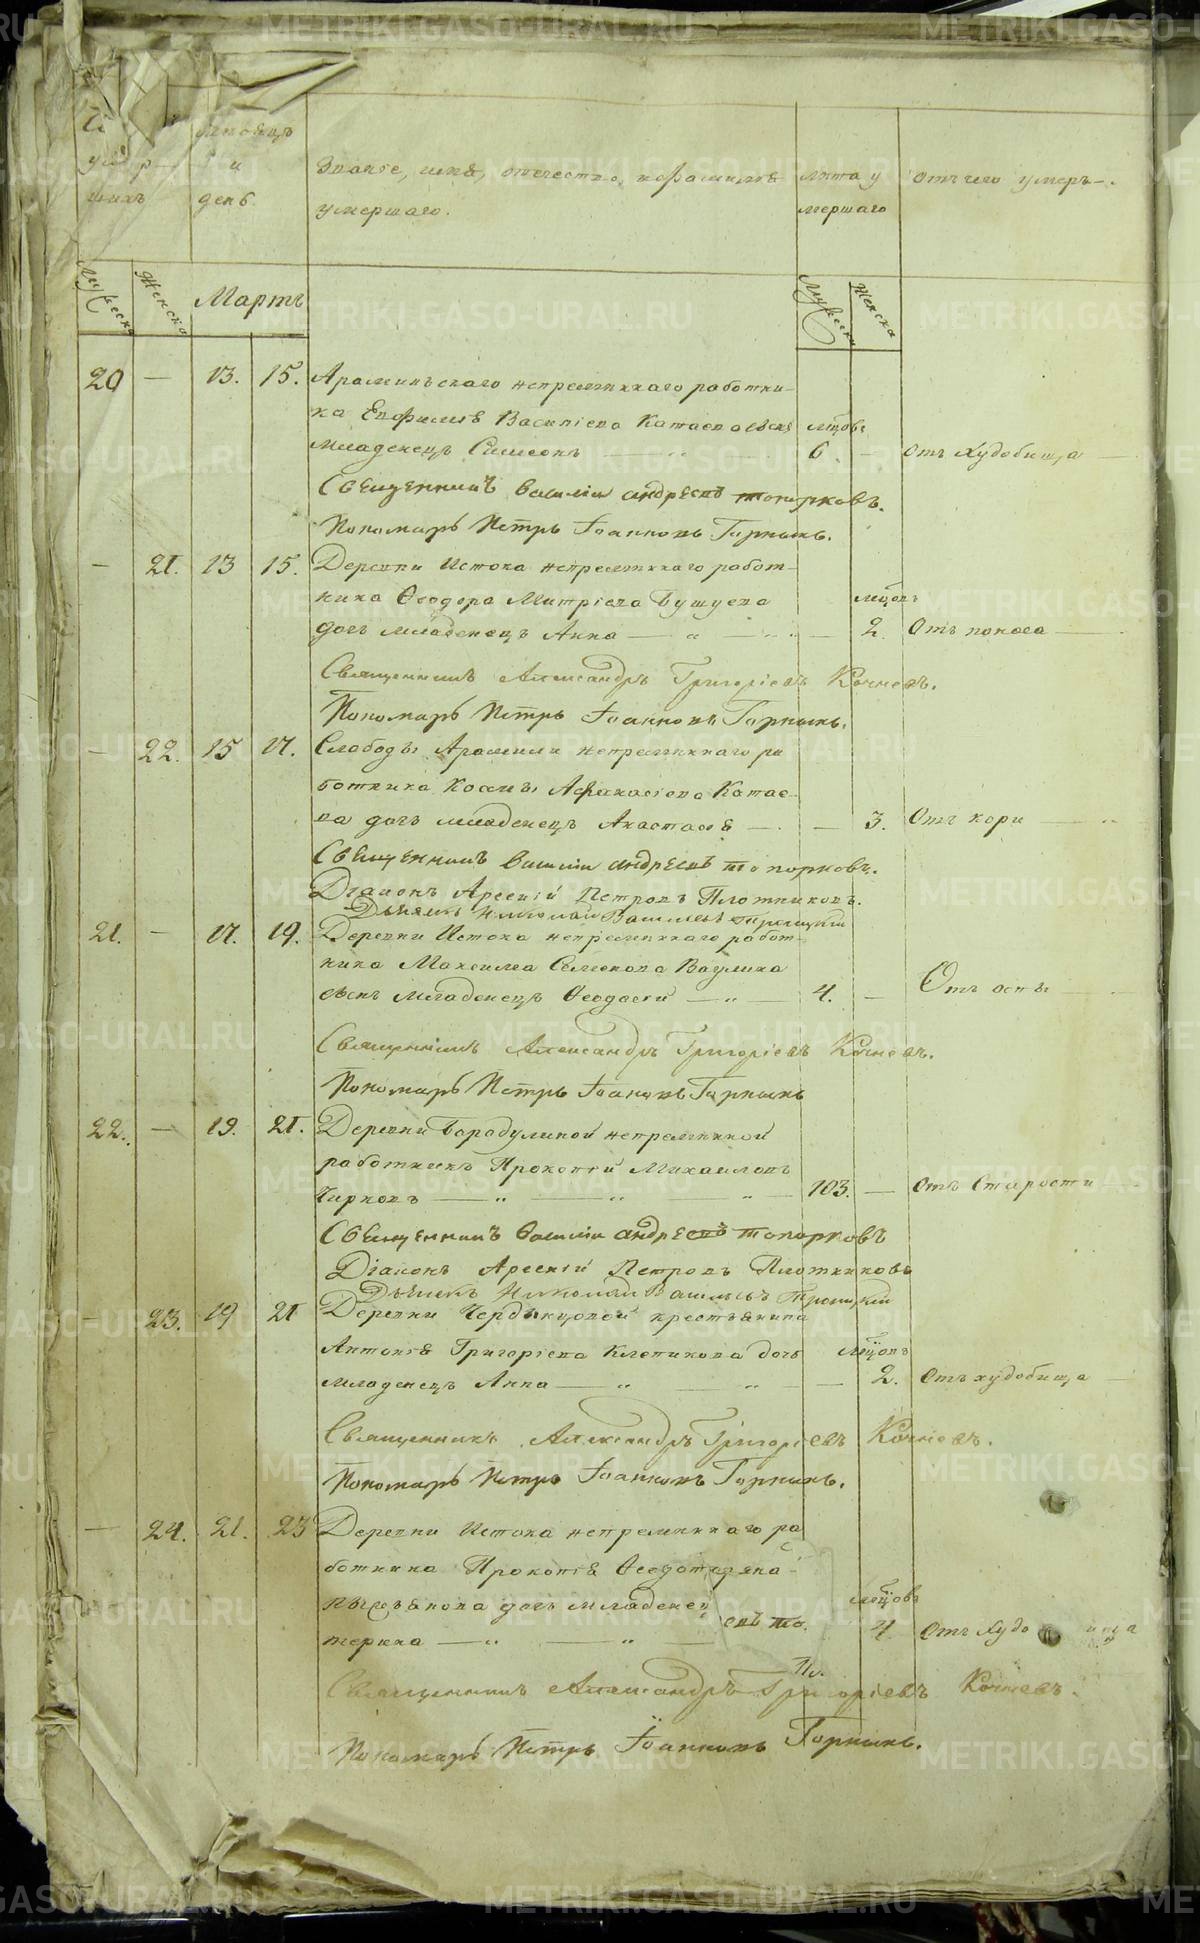 умер
шихъ
мѣсяцъ
и
день.
Званіе, имя, отечество, и фамилія
умершаго.
лѣта у
мершаго
отъ чего умеръ.
Мужеска
Женска
Мартъ
Мужеска
Женска
20 — 13. 15. Арамильскаго непремѣннаго работни-
ка Евфимія Васильева Катаева сынъ мѣсяцовъ
младенецъ Симеонъ — 6. — отъ худобища —
Священникъ Василій Андреевъ Топорковъ.
Пономарь Петръ Іоанновъ Горныхъ.
— 21. 13 15. Деревни Истока непремѣннаго работ-
ника Ѳеодора Митріева Бушуева мѣсяцовъ
дочь младенецъ Анна — 2. Отъ поноса —
Священникъ Александръ Григоріевъ Кочневъ.
Пономарь Петръ Іоанновъ Горныхъ.
— 22. 15 17. Слободы Арамили непремѣннаго ра
ботника Космы Афанасіева Катае-
ва дочь младенецъ Анастасія — — 3. Отъ кори —
Священникъ Василій Андреевъ Топорковъ.
Діаконъ Арсеній Петровъ Плотниковъ.
Дьячекъ Николай Васильевъ Троицкій
21. — 17. 19. Деревни Истока непремѣннаго работ-
ника Максима Семенова Ваулина
сынъ младенецъ Ѳеодосей — 4. — Отъ оспы —
Священникъ Александръ Григоріевъ Кочневъ.
Пономарь Петръ Іоанновъ Горныхъ
22. — 19. 21. Деревни Бородулиной непремѣнной
работникъ Прокопей Михаиловъ
Чирковъ — 103. — отъ Старости
Священникъ Василій Андреевъ Топорковъ
Діаконъ Арсеній Петровъ Плотниковъ
Дьячекъ Николай Васильевъ Троицкій
— 23. 19 21 Деревни Чердынцовой крестьянина
Антонія Григоріева Клепикова дочь мѣсяцовъ
младенецъ Анна — 2. отъ худобища —
Священникъ Александръ Григоріевъ Кочневъ.
Пономарь Петръ Іоанновъ Горныхъ.
— 24. 21. 23 Деревни Истока непремѣннаго ра
ботника Прокопія
дочь младенец мѣсяцовъ
терина — 4. отъ худо ища
Священникъ Александръ Григоріевъ Кочневъ.
Пономарь Петръ Іоанновъ Горныхъ.
METRIKI.GASO-URAL.RU